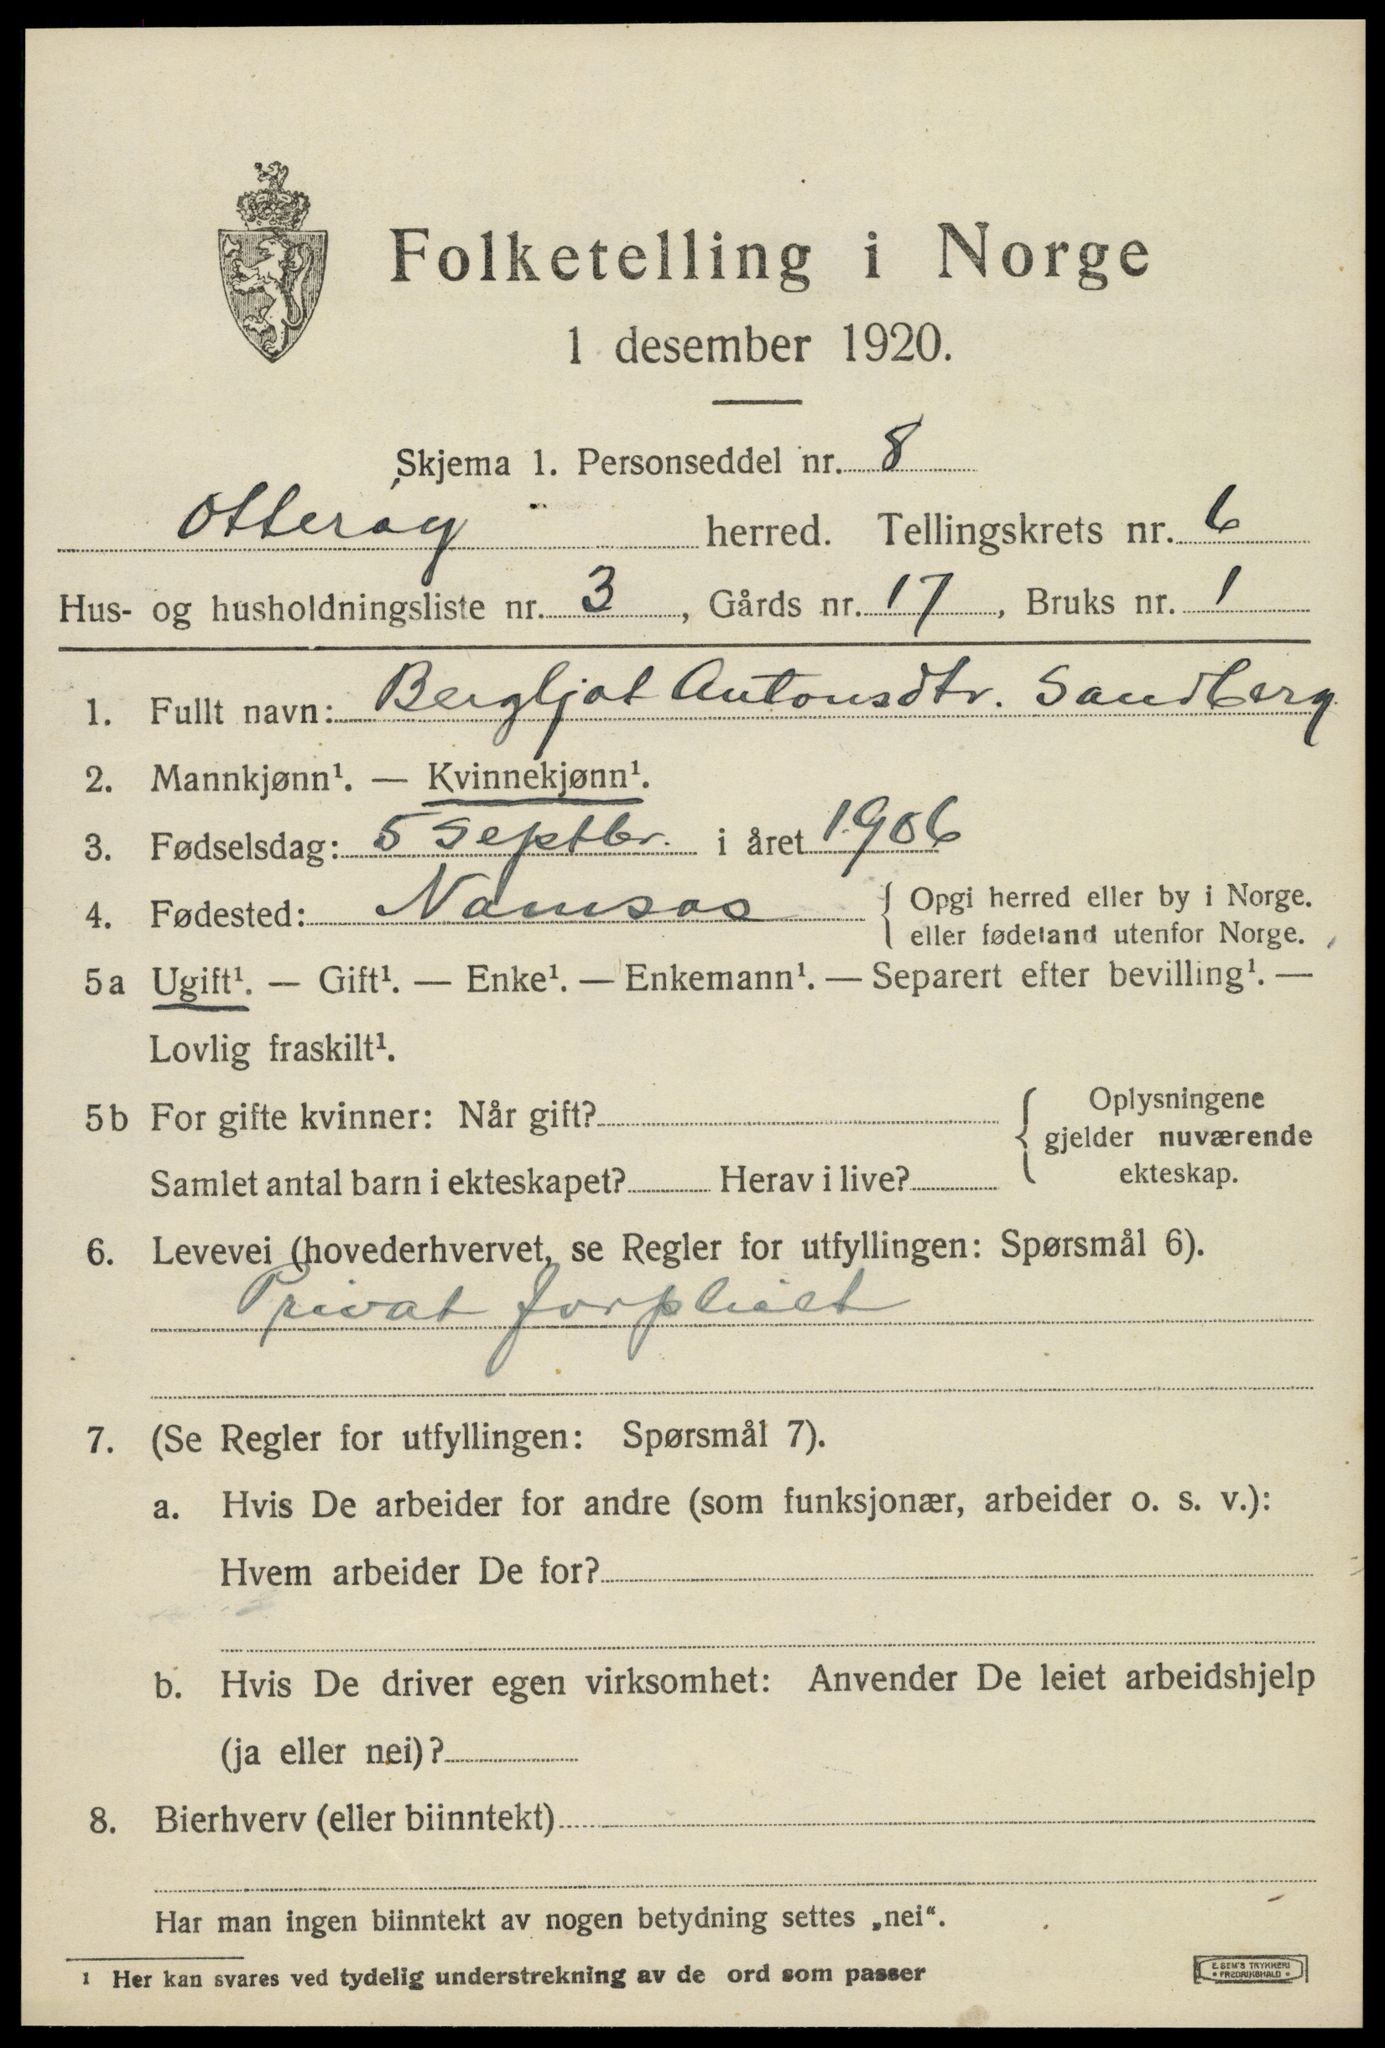 Folketelling i Norge
1 desember 1920.
Skjema 1. Personseddel nr. 8
Otterøy herred. Tellingskrets nr. 6
Hus- og husholdningsliste nr. 3, Gårds nr. 17, Bruks nr. 1
1. Fullt navn: Bergljot Antonsdtr. Sandberg
2. Mannkjønn¹. — Kvinnekjønn¹.
3. Fødselsdag: 5 Septbr. i året 1906
4. Fødested: Namsos { Opgi herred eller by i Norge.
eller fødeland utenfor Norge.
5a Ugift¹. — Gift¹. — Enke¹. — Enkemann¹. — Separert efter bevilling¹. —
Lovlig fraskilt¹.
5b For gifte kvinner: Når gift?
Samlet antal barn i ekteskapet? Herav i live?
{ Oplysningene
gjelder nuværende
ekteskap.
6. Levevei (hovederhvervet, se Regler for utfyllingen: Spørsmål 6).
Privat forpleiet
7. (Se Regler for utfyllingen: Spørsmål 7).
a. Hvis De arbeider for andre (som funksjonær, arbeider o. s. v.):
Hvem arbeider De for?
b. Hvis De driver egen virksomhet: Anvender De leiet arbeidshjelp
(ja eller nei)?
8. Bierhverv (eller biinntekt)
Har man ingen biinntekt av nogen betydning settes „nei“.
¹ Her kan svares ved tydelig understrekning av de ord som passer
E. SEM'S TRYKKERI
• FREDRIKSHALD •